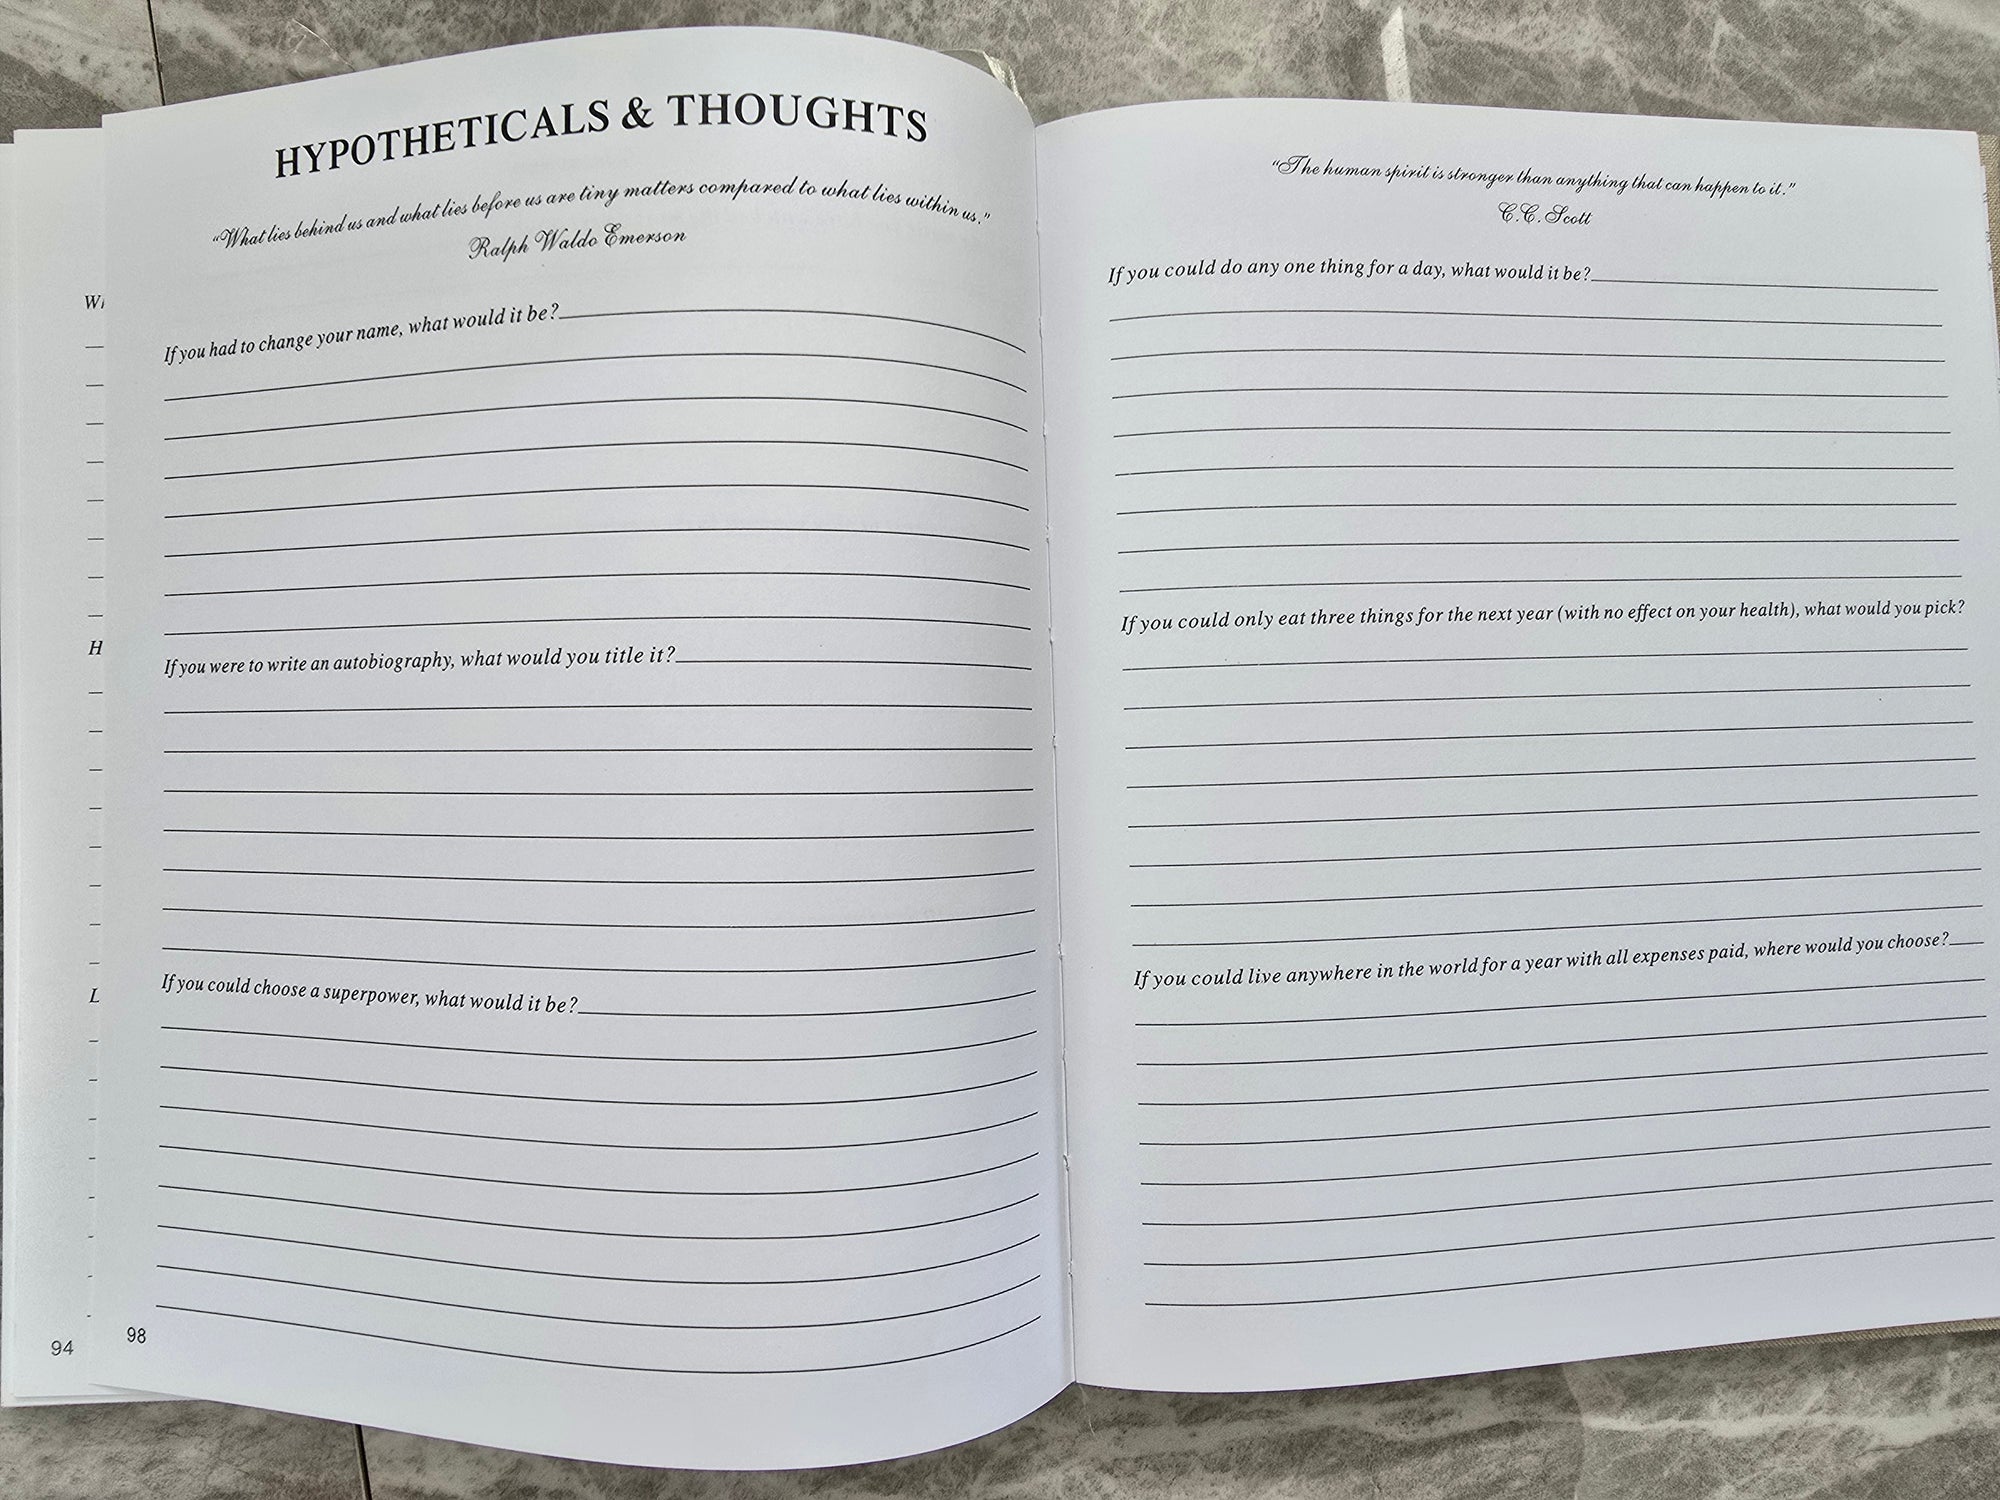 HYPOTHETICALS & THOUGHTS
“What lies behind us and what lies before us are tiny matters compared to what lies within us.”
Ralph Waldo Emerson
If you had to change your name, what would it be?
If you were to write an autobiography, what would you title it?
If you could choose a superpower, what would it be?
98
94
H
L
“The human spirit is stronger than anything that can happen to it.”
C.C. Scott
If you could do any one thing for a day, what would it be?
If you could only eat three things for the next year (with no effect on your health), what would you pick?
If you could live anywhere in the world for a year with all expenses paid, where would you choose?